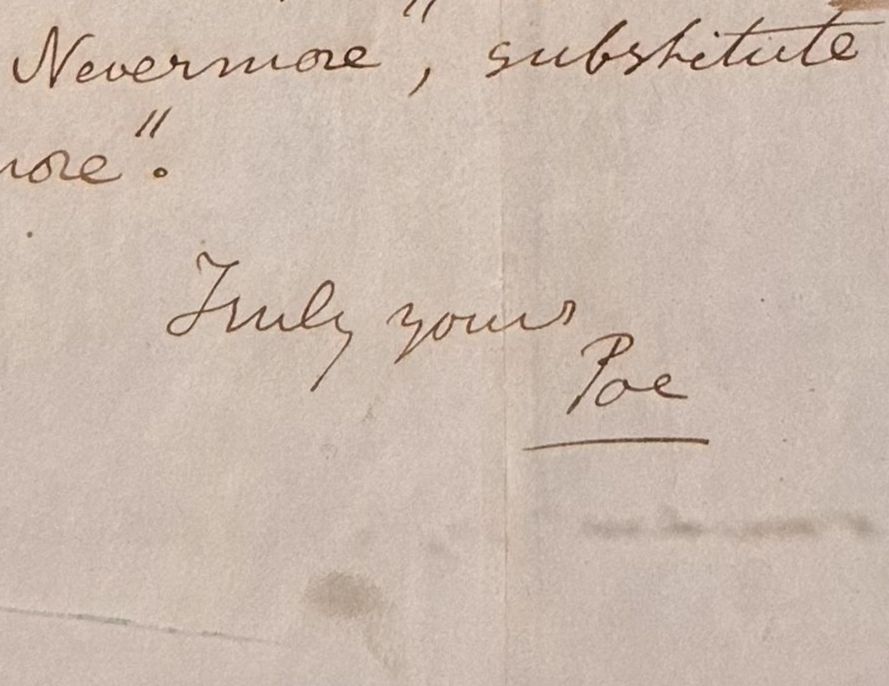 Nevermore", substitute
more".
Truly yours
Poe